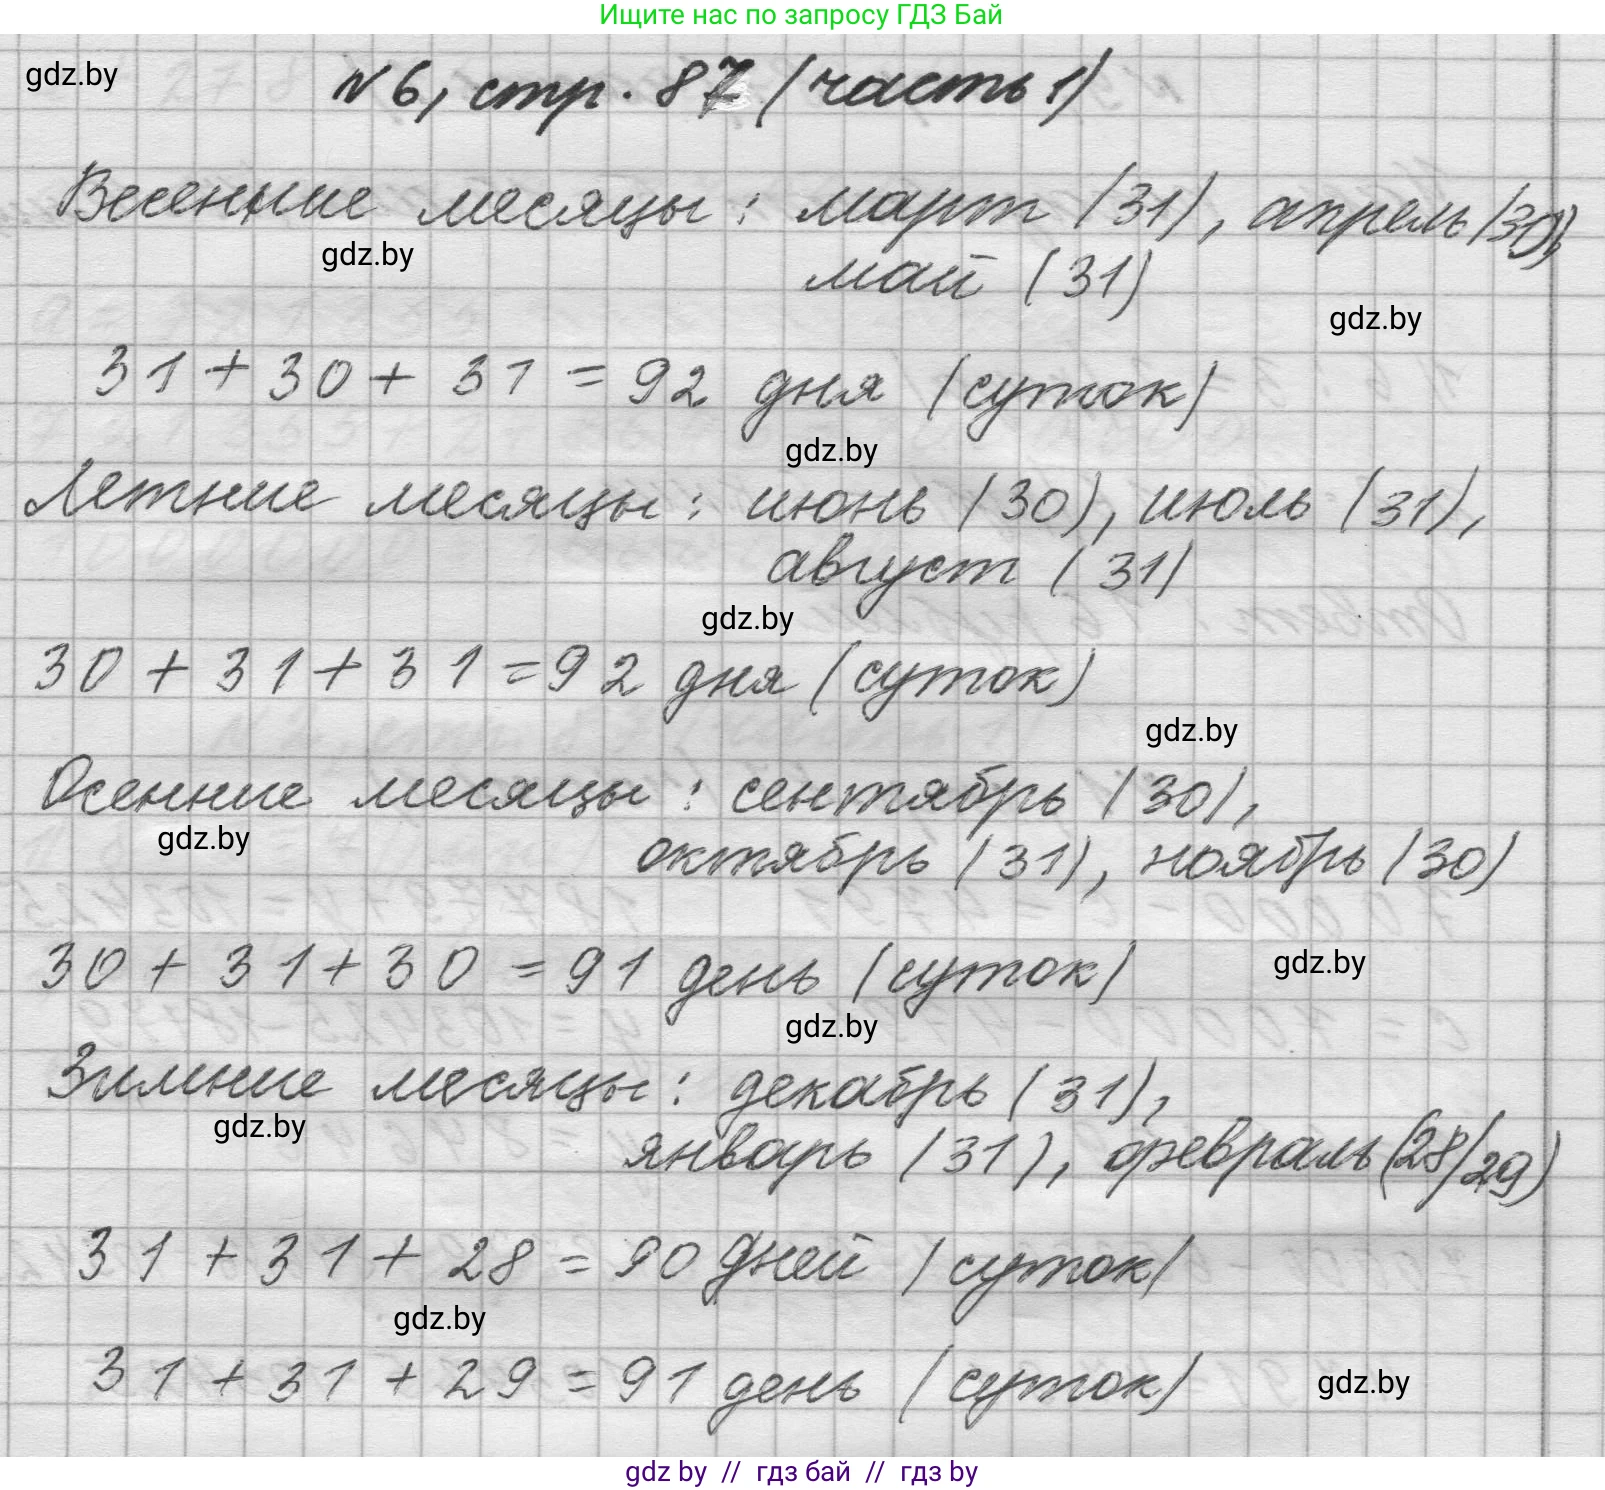 Ищите нас по запросу ГДЗ Бай
gdz.by
№6, стр. 87 (часть 1)
Весенние месяцы: март (31), апрель (30),
gdz.by
май (31)
gdz.by
31 + 30 + 31 = 92 дня (суток)
gdz.by
Летние месяцы: июнь (30), июль (31),
август (31)
gdz.by
30 + 31 + 31 = 92 дня (суток)
gdz.by
Осенние месяцы: сентябрь (30),
gdz.by
октябрь (31), ноябрь (30)
30 + 31 + 30 = 91 день (суток)
gdz.by
gdz.by
Зимние месяцы: декабрь (31),
gdz.by
январь (31), февраль (28/29)
31 + 31 + 28 = 90 дней (суток)
gdz.by
31 + 31 + 29 = 91 день (суток)
gdz.by
gdz by // гдз бай // гдз by